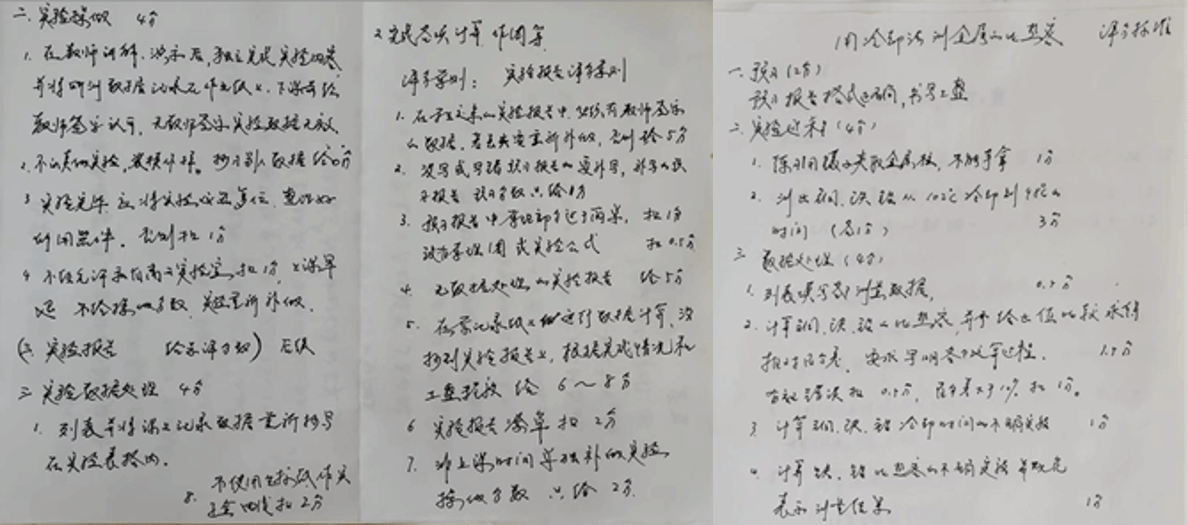 二. 实验操做 4分
1. 在教师讲解、演示后, 独立完成实验内容
并将所测数据记录在作业纸上. 下课前经
教师签字认可, 无教师签字实验数据无效.
2. 不认真做实验, 数据作弊, 抄袭别人数据给0分
3 实验完毕 应将实验仪器复位, 整理好
所用器件. 否则扣1分
4 不经允许私自离开实验室扣1分
迟 不给操做分数 实验重新补做.
(三. 实验报告 给予评分) 无纸
三 实验数据处理 4分
1. 列表并将课上记录数据重新抄写
在实验表格内.
8. 不使用坐标纸作实
验曲线扣2分
2. 完成各项计算 作图等
评分原则: 实验报告评分原则
1. 在交上来的实验报告中, 必须有教师签字
的数据, 若丢失需重新补做, 否则给5分
2. 没写或写错预习报告的要补写, 补写的预
习报告 预习分数只给1分
3. 预习报告中原理部分过于简单, 扣1分
没有原理图或实验公式 扣0.5分
4. 无数据处理的实验报告 给5分
5. 在原记录纸上进行数据计算, 没
抄到实验报告上, 根据完成情况和
工整程度 给 6~8分
6 实验报告潦草扣2分
7. 非上课时间单独补做实验
操做分数 只给2分.
用冷却法测金属的比热容 评分标准
一. 预习(2分)
预习报告格式正确, 书写工整
二. 实验过程 (4分)
1. 使用镊子夹取金属块, 不能手拿 1分
2. 测出铜、铁、铝从102℃冷却到98℃的
时间 (各1分) 3分
三. 数据处理 (4分)
1. 列表填写各测量数据, 0.5分
2. 计算铜、铁、铝的比热容 并和给出值比较 求得
相对误差. 要求写明各步运算过程. 1.5分
有一处错误扣0.5分, 误差大于10% 扣1分.
3 计算铜、铁、铝冷却时间的不确定度 1分
4. 计算铁、铝比热容的不确定度 并规范
表示测量结果 1分